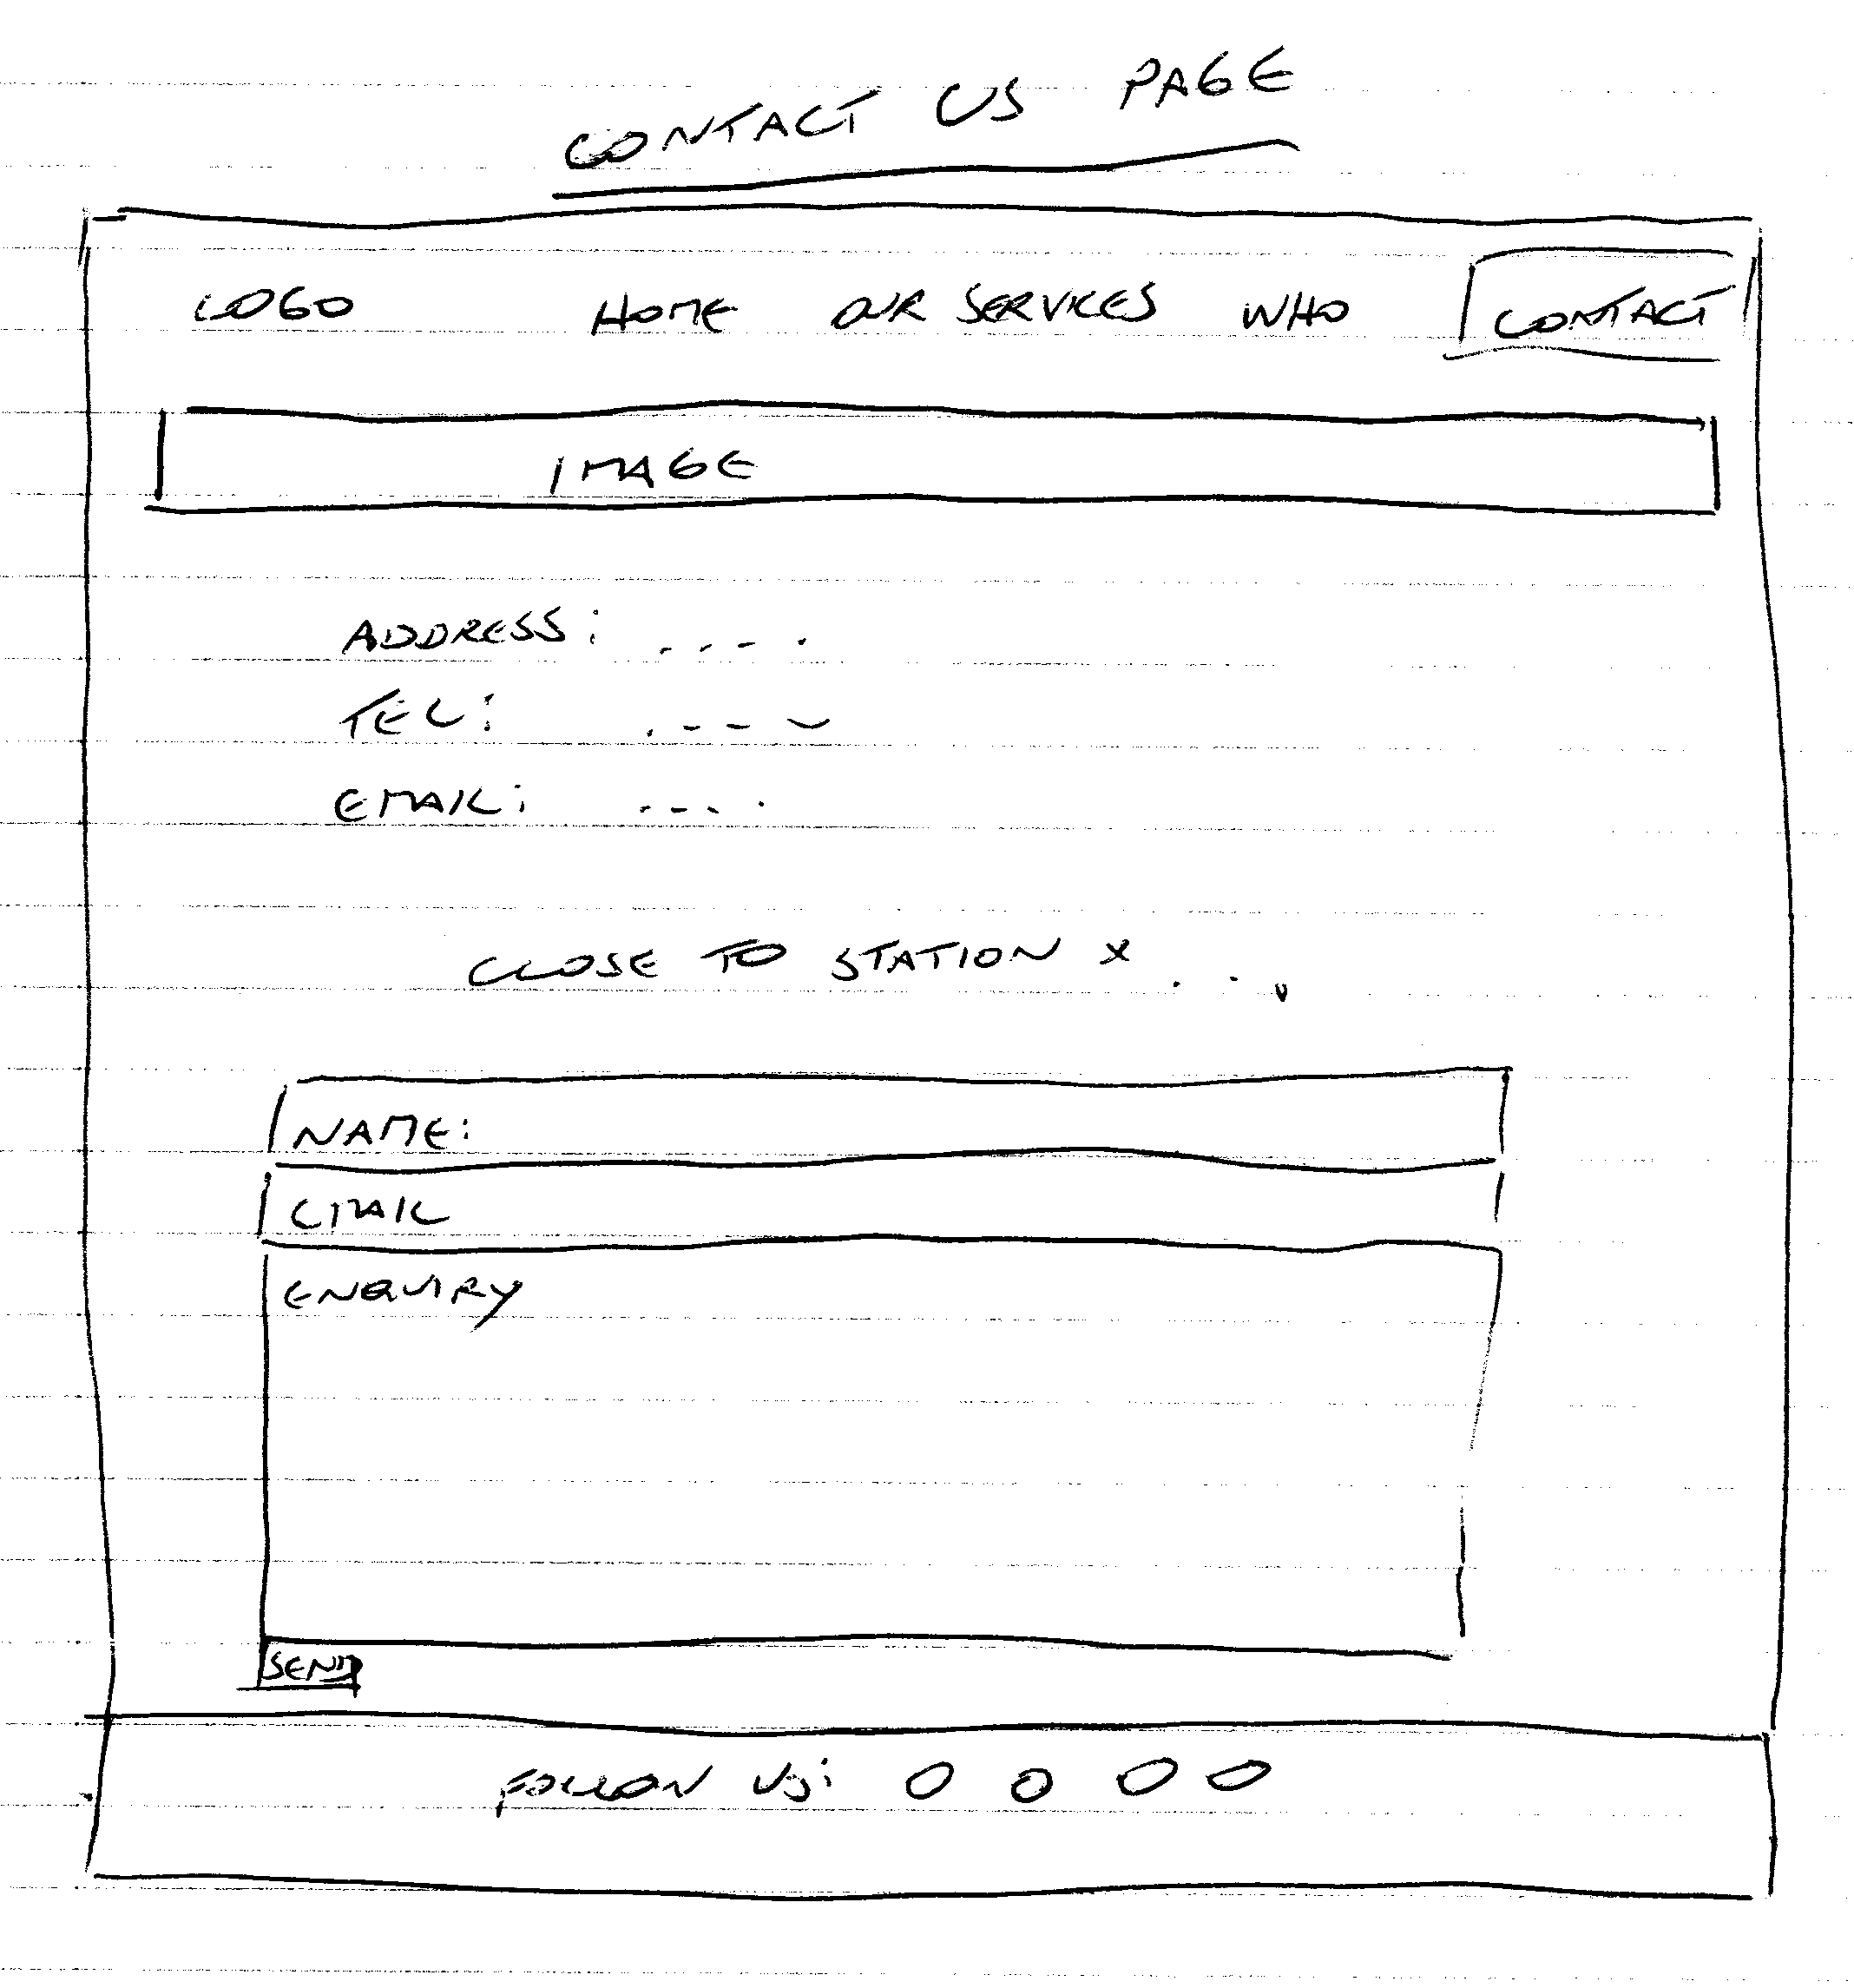 CONTACT US PAGE
LOGO HOME OUR SERVICES WHO CONTACT
IMAGE
ADDRESS: ....
TEL: ....
EMAIL: ....
CLOSE TO STATION X ...
NAME:
EMAIL
ENQUIRY
SEND
FOLLOW US: